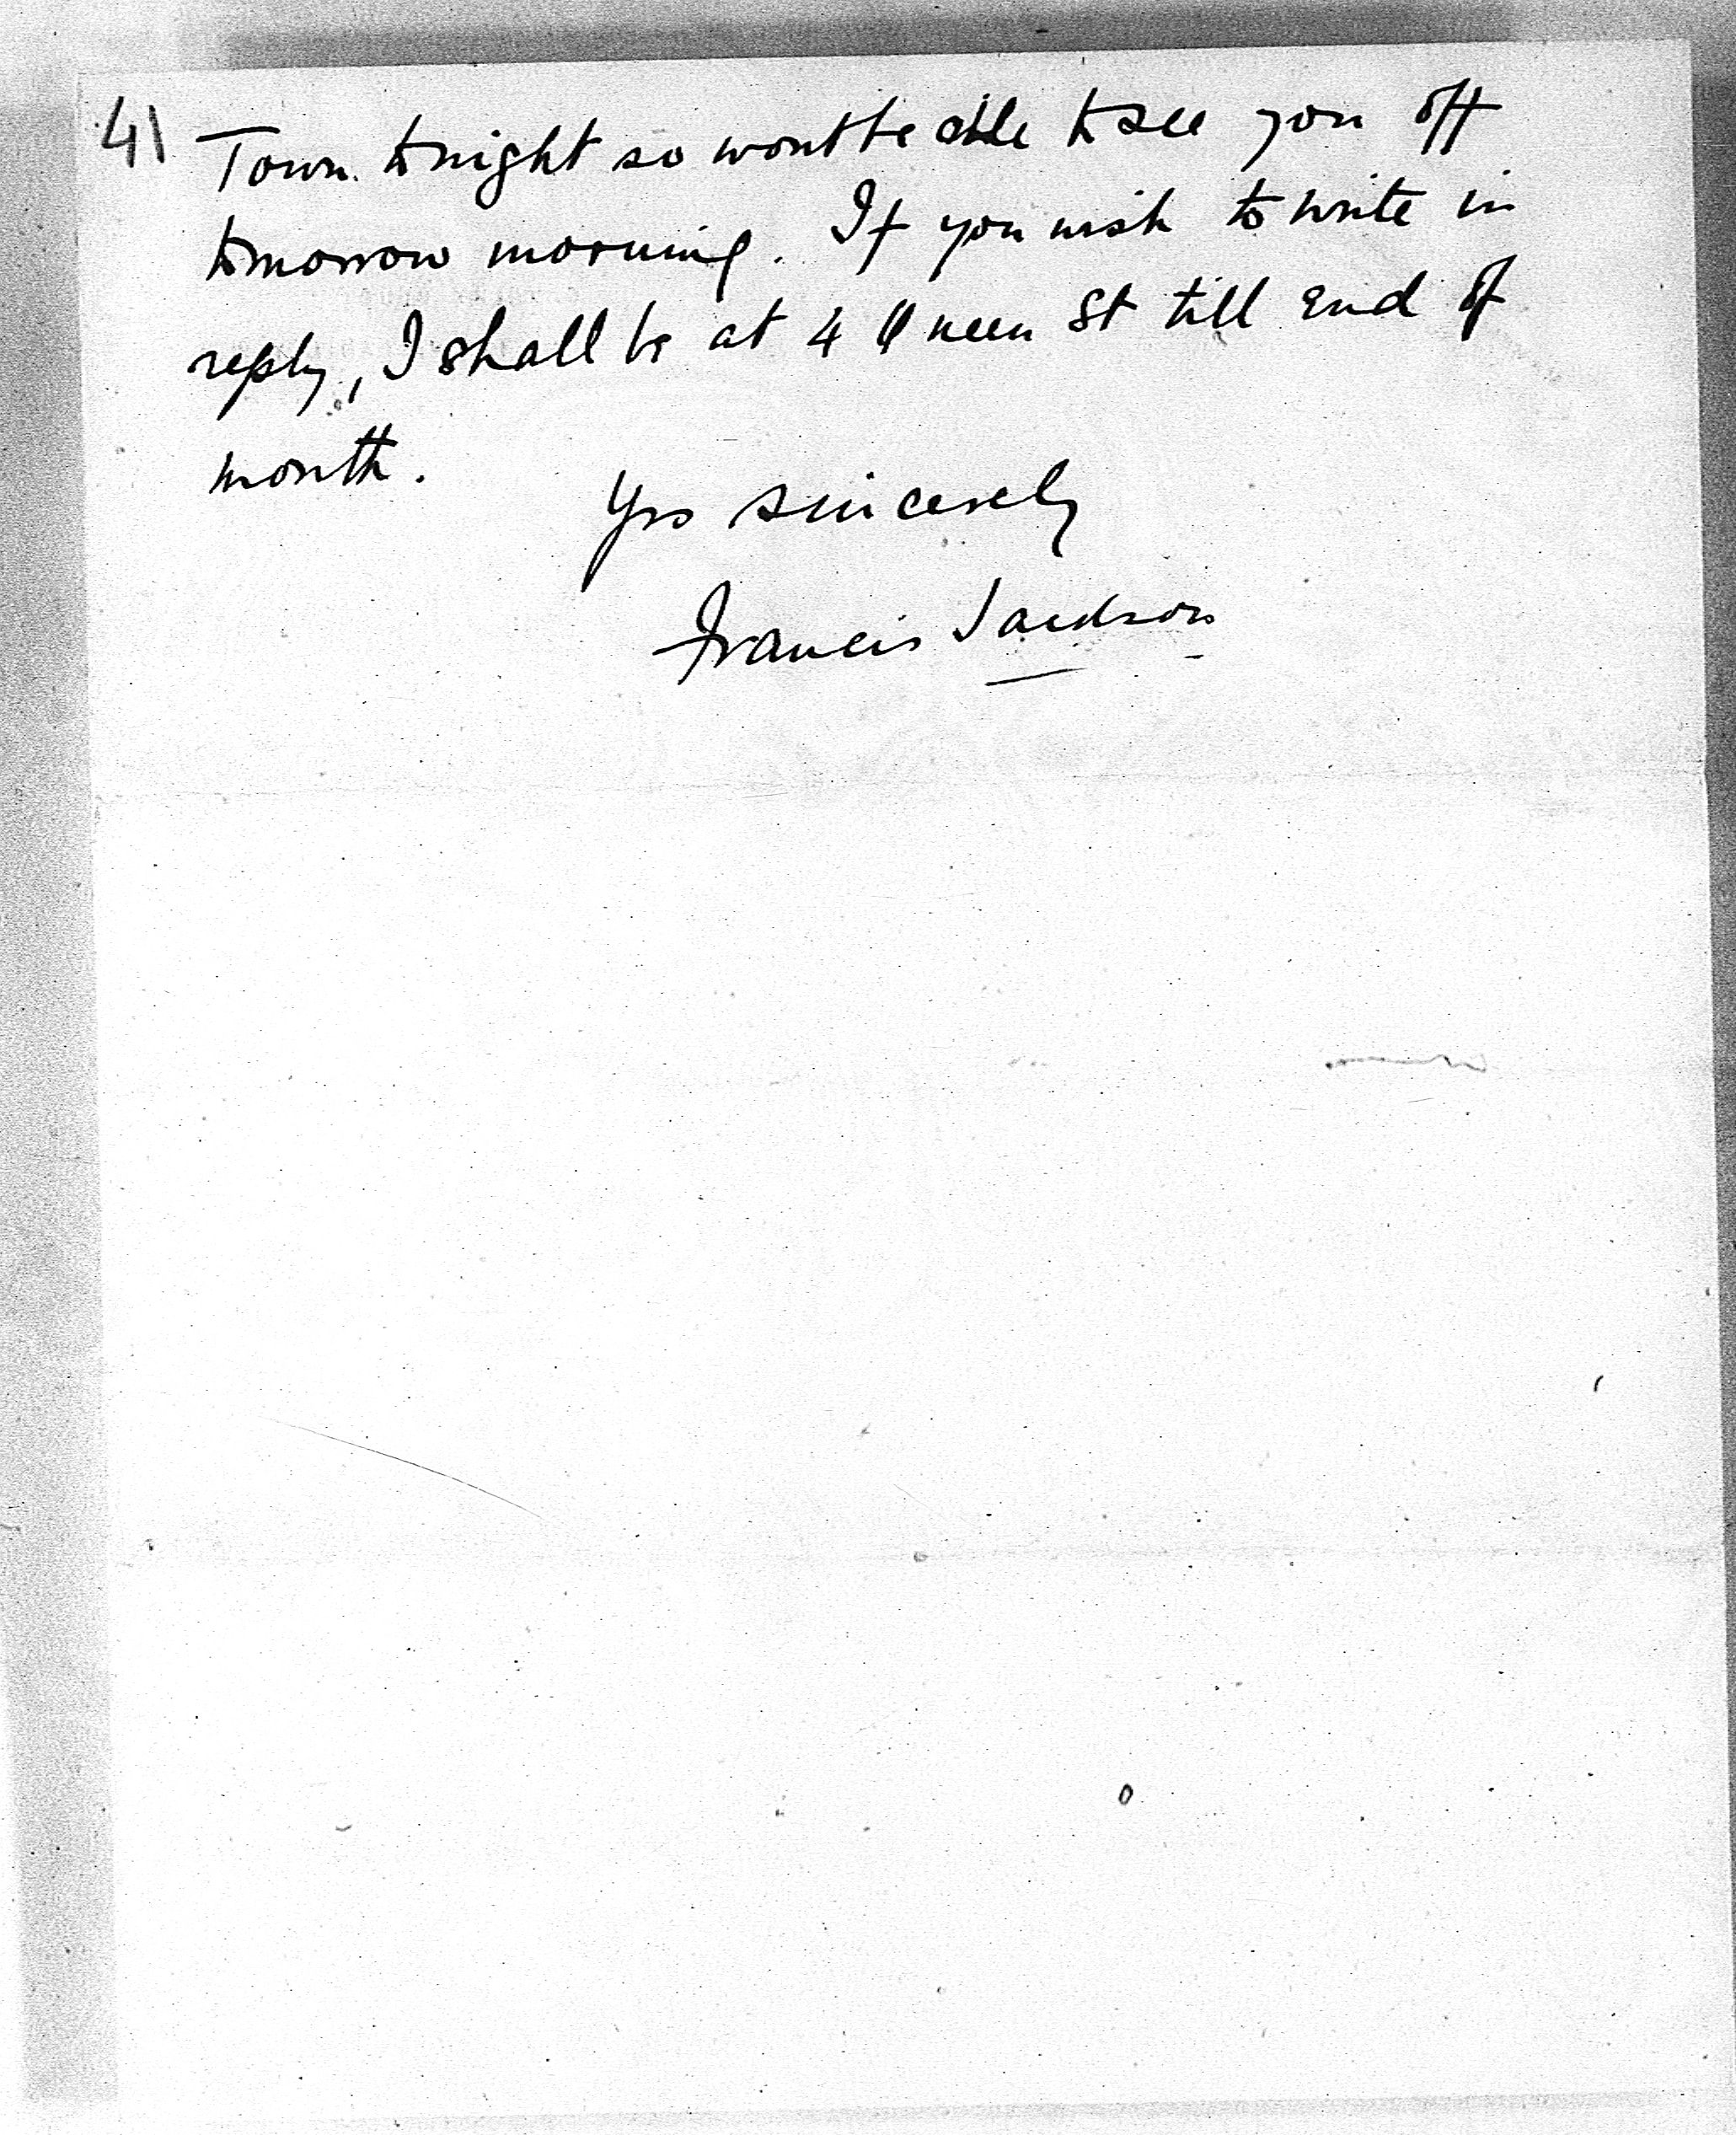 4) Town tonight so wont be able to see you off
tomorrow morning. If you wish to write in
reply, I shall be at 4 Queen St till end of
month.
Yrs sincerely
Francis Jackson